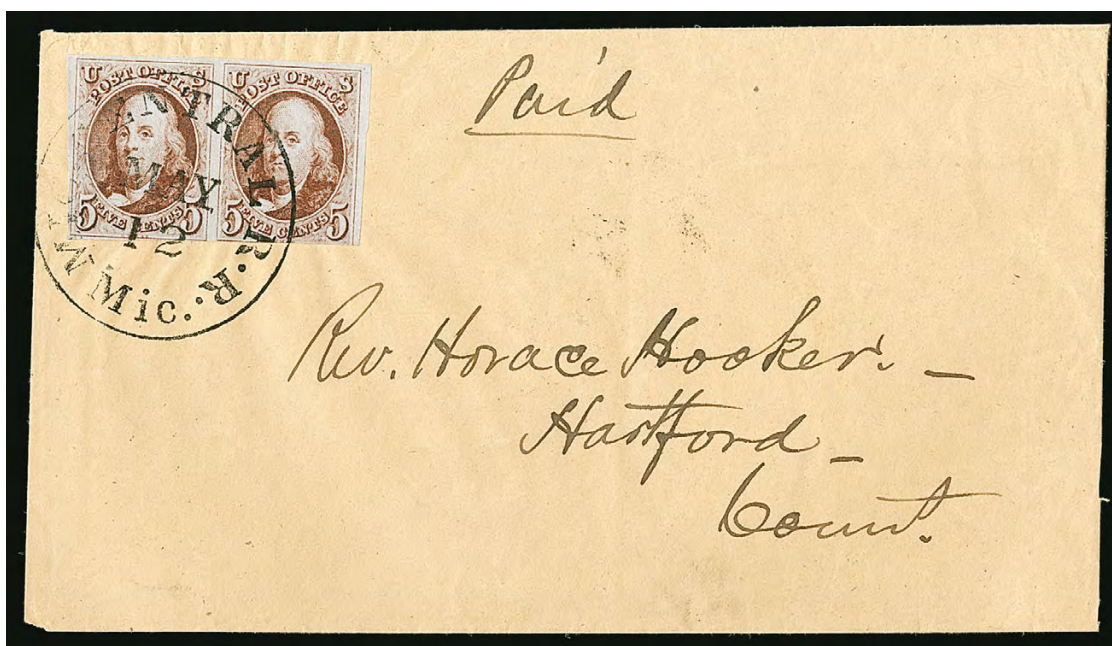 Paid
U S
POST OFFICE
5 FIVE CENTS 5
U S
POST OFFICE
5 FIVE CENTS 5
CENTRAL R.R.
MAY
12
Mic.
Rev. Horace Hooker. –
Hartford –
Connt.